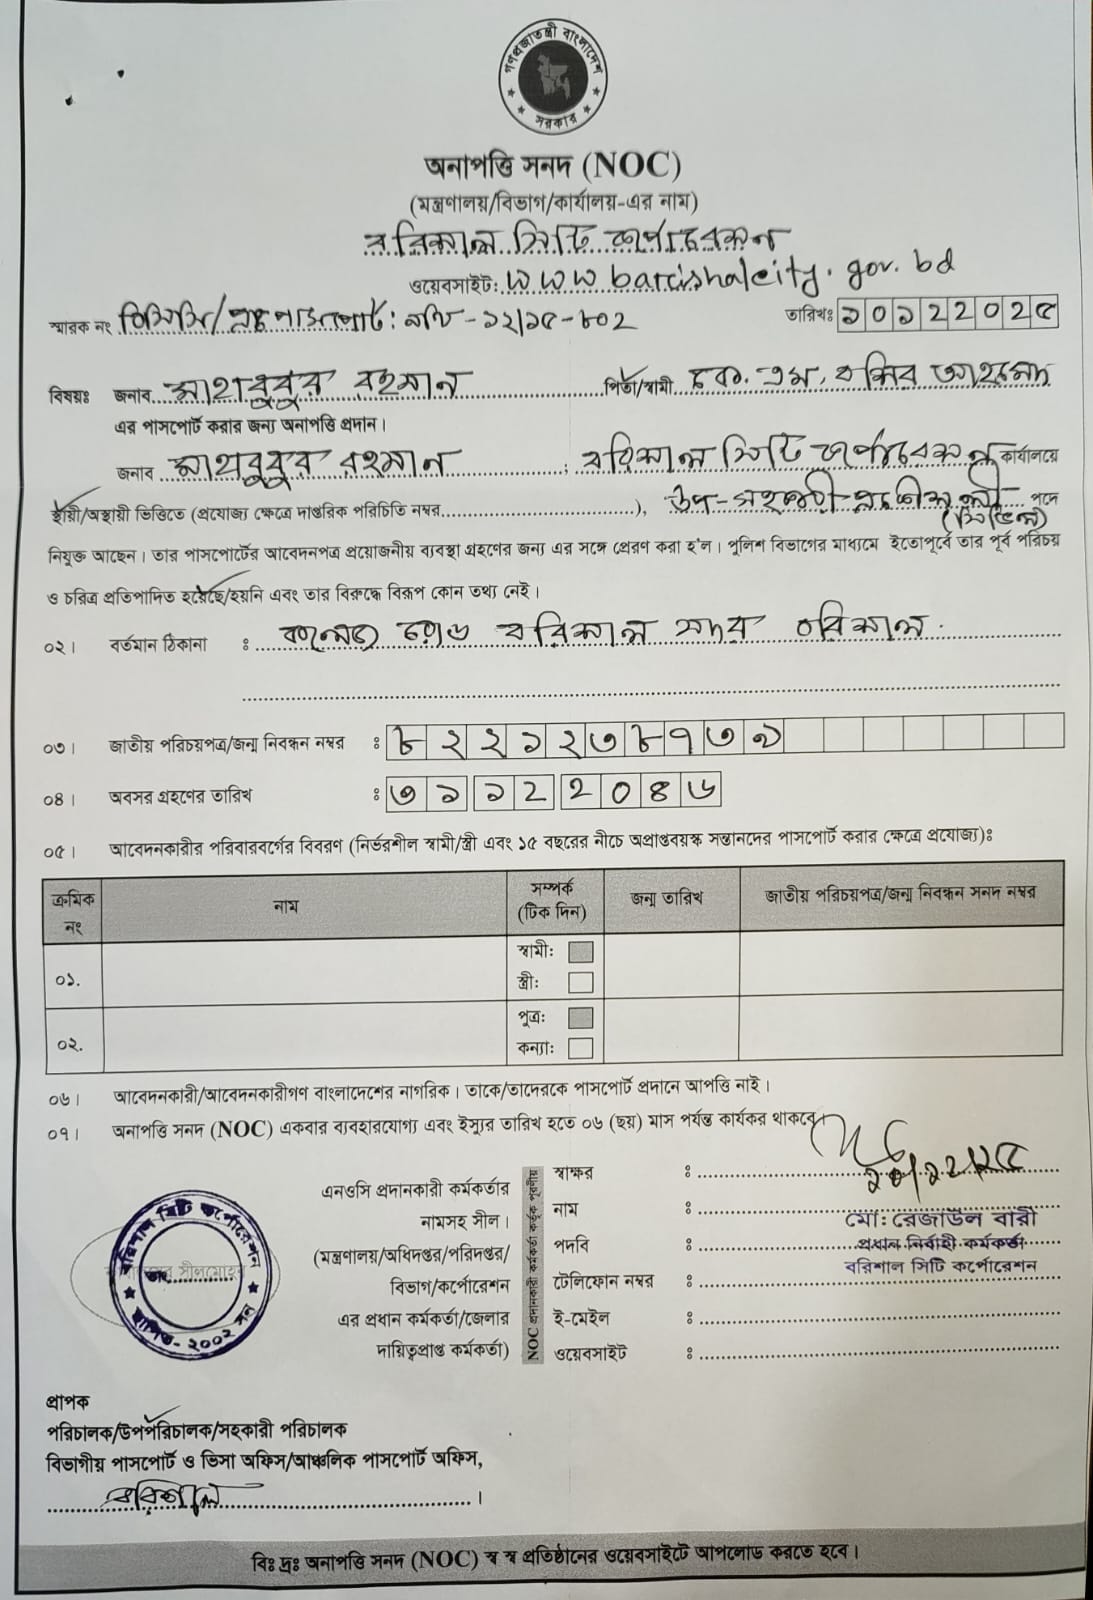 গণপ্রজাতন্ত্রী বাংলাদেশ
সরকার
অনাপত্তি সনদ (NOC)
(মন্ত্রণালয়/বিভাগ/কার্যালয়-এর নাম)
বরিশাল সিটি কর্পোরেশন
ওয়েবসাইট: www.barishalcity.gov.bd
স্মারক নং বিসিসি/ পাসপোর্ট: ১২/১৫-৮০২ তারিখঃ ১০১২২০২৫
বিষয়ঃ জনাব মাহাবুবুর রহমান পিতা/স্বামী কে. এম. রকিব আহমেদ
এর পাসপোর্ট করার জন্য অনাপত্তি প্রদান।
জনাব মাহাবুবুর রহমান , বরিশাল সিটি কর্পোরেশন কার্যালয়ে
স্থায়ী/অস্থায়ী ভিত্তিতে (প্রযোজ্য ক্ষেত্রে দাপ্তরিক পরিচিতি নম্বর), উপ-সহকারী প্রকৌশলী (সিভিল) পদে
নিযুক্ত আছেন। তার পাসপোর্টের আবেদনপত্র প্রয়োজনীয় ব্যবস্থা গ্রহণের জন্য এর সঙ্গে প্রেরণ করা হ'ল। পুলিশ বিভাগের মাধ্যমে ইতোপূর্বে তার পূর্ব পরিচয়
ও চরিত্র প্রতিপাদিত হয়েছে/হয়নি এবং তার বিরুদ্ধে বিরূপ কোন তথ্য নেই।
০২। বর্তমান ঠিকানা : কলেজ রোড বরিশাল সদর বরিশাল.
০৩। জাতীয় পরিচয়পত্র/জন্ম নিবন্ধন নম্বর : ৮২২১২৩৮৭৩৯
০৪। অবসর গ্রহণের তারিখ : ৩১১২২০৪৬
০৫। আবেদনকারীর পরিবারবর্গের বিবরণ (নির্ভরশীল স্বামী/স্ত্রী এবং ১৫ বছরের নীচে অপ্রাপ্তবয়স্ক সন্তানদের পাসপোর্ট করার ক্ষেত্রে প্রযোজ্য)ঃ
ক্রমিক নং নাম সম্পর্ক (টিক দিন) জন্ম তারিখ জাতীয় পরিচয়পত্র/জন্ম নিবন্ধন সনদ নম্বর
০১. স্বামী:
স্ত্রী:
০২. পুত্র:
কন্যা:
০৬। আবেদনকারী/আবেদনকারীগণ বাংলাদেশের নাগরিক। তাকে/তাদেরকে পাসপোর্ট প্রদানে আপত্তি নাই।
০৭। অনাপত্তি সনদ (NOC) একবার ব্যবহারযোগ্য এবং ইস্যুর তারিখ হতে ০৬ (ছয়) মাস পর্যন্ত কার্যকর থাকবে।
এনওসি প্রদানকারী কর্মকর্তার
নামসহ সীল।
(মন্ত্রণালয়/অধিদপ্তর/পরিদপ্তর/
বিভাগ/কর্পোরেশন
এর প্রধান কর্মকর্তা/জেলার
দায়িত্বপ্রাপ্ত কর্মকর্তা)
NOC প্রদানকারী কর্মকর্তা কর্তৃক পূরণীয়
স্বাক্ষর : ১০/১২/২৫
নাম : মো: রেজাউল বারী
পদবি : প্রধান নির্বাহী কর্মকর্তা
বরিশাল সিটি কর্পোরেশন
টেলিফোন নম্বর :
ই-মেইল :
ওয়েবসাইট :
বরিশাল সিটি কর্পোরেশন
স্থাপিত- ২০০২ সন
প্রাপক
পরিচালক/উপপরিচালক/সহকারী পরিচালক
বিভাগীয় পাসপোর্ট ও ভিসা অফিস/আঞ্চলিক পাসপোর্ট অফিস,
বরিশাল।
বিঃ দ্রঃ অনাপত্তি সনদ (NOC) স্ব স্ব প্রতিষ্ঠানের ওয়েবসাইটে আপলোড করতে হবে।